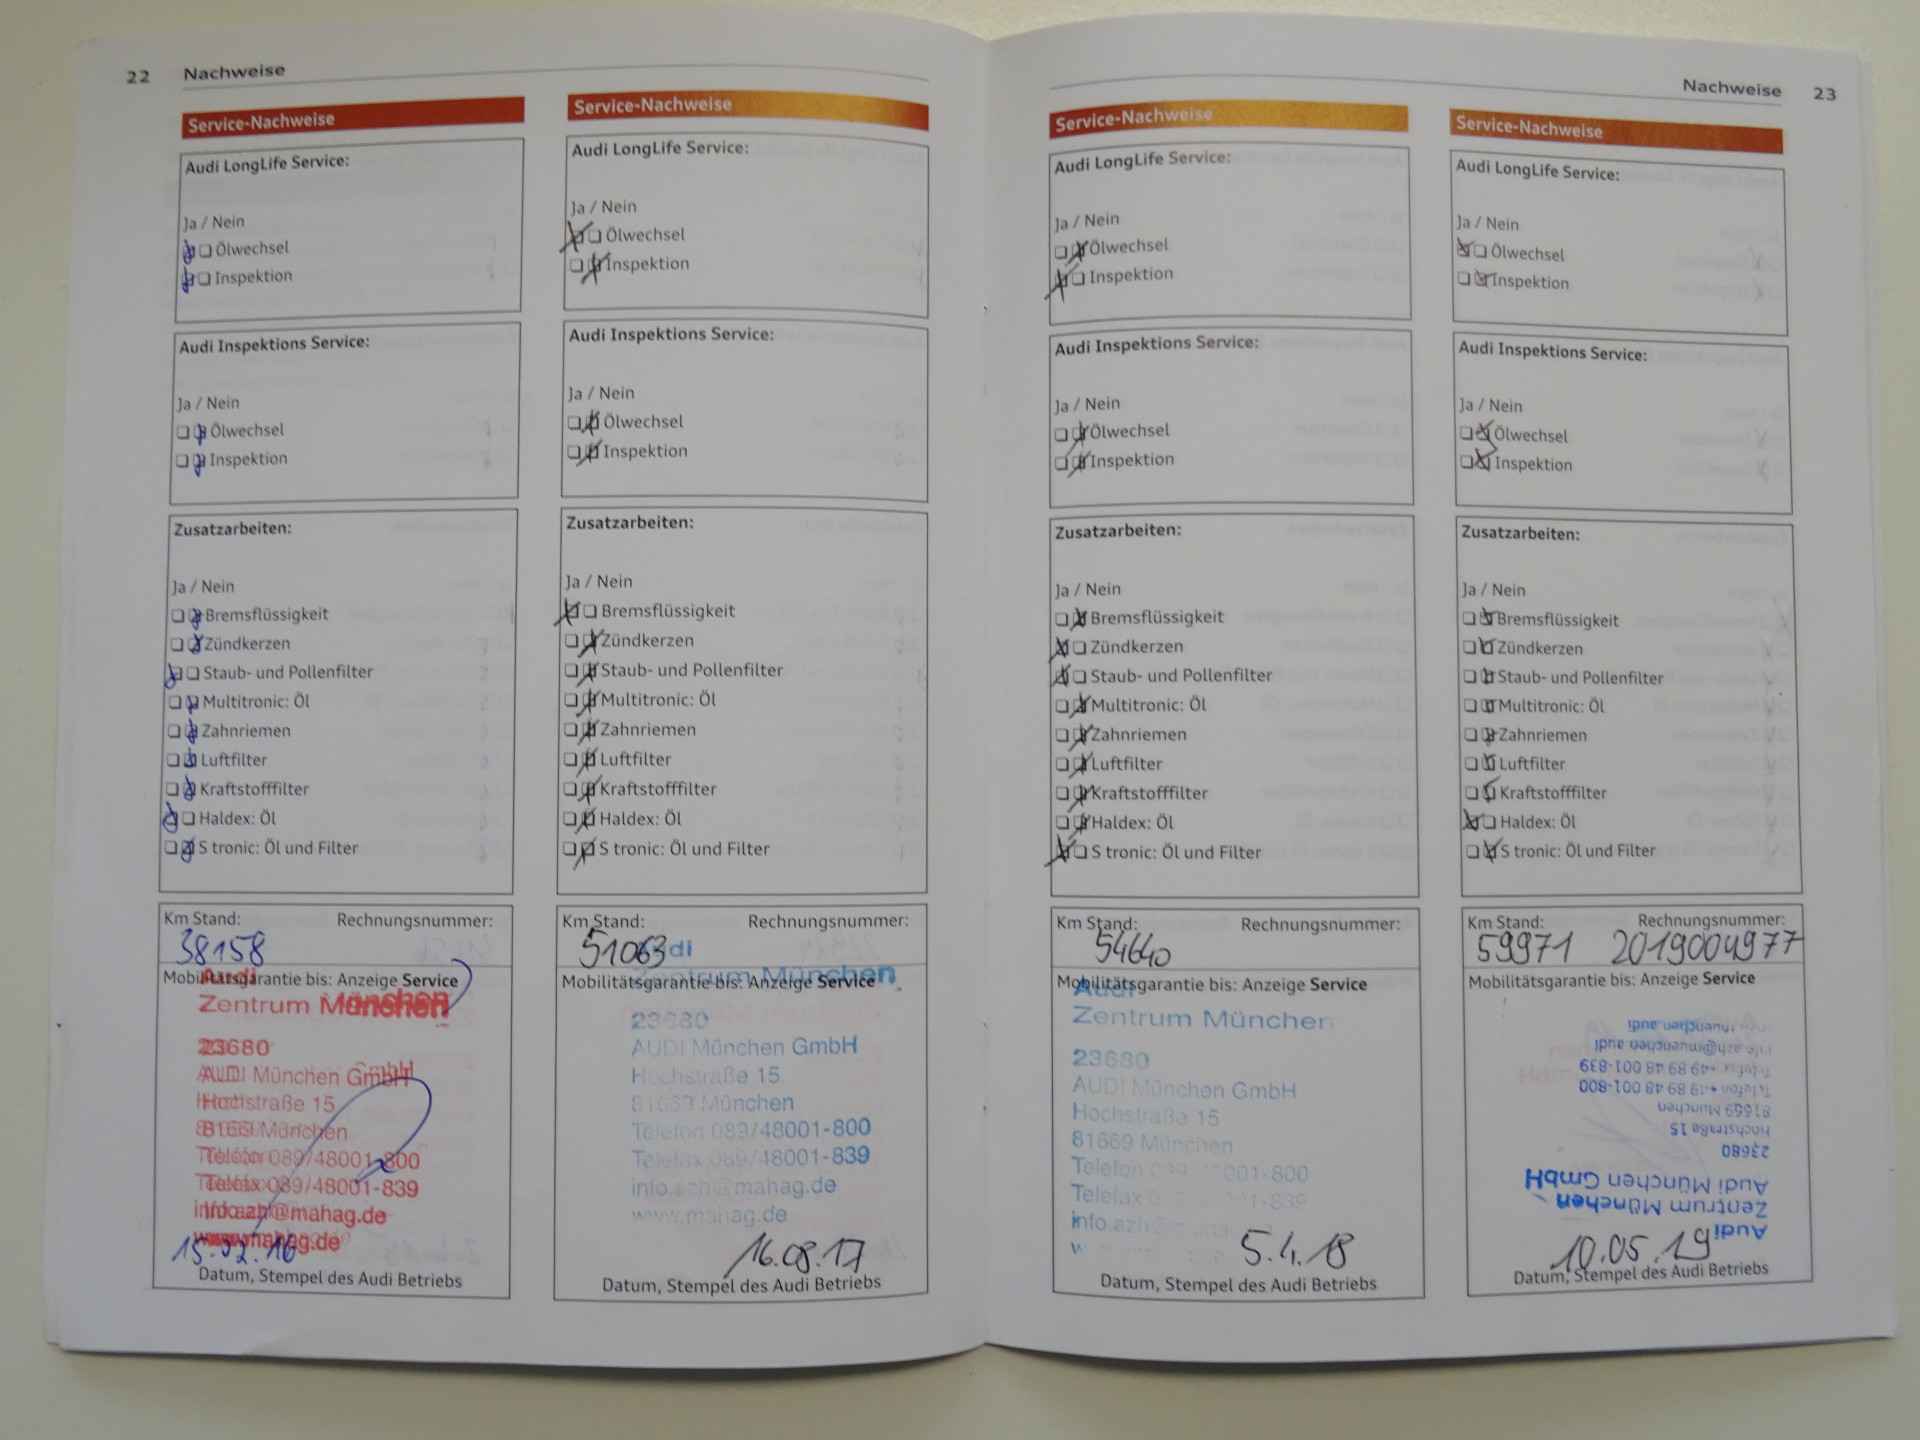 22 Nachweise
Service-Nachweise
Audi LongLife Service:
Ja / Nein
Ölwechsel
Inspektion
Audi Inspektions Service:
Ja / Nein
Ölwechsel
Inspektion
Zusatzarbeiten:
Ja / Nein
Bremsflüssigkeit
Zündkerzen
Staub- und Pollenfilter
Multitronic: Öl
Zahnriemen
Luftfilter
Kraftstofffilter
Haldex: Öl
S tronic: Öl und Filter
Km Stand: Rechnungsnummer:
38158
Mobilitätsgarantie bis: Anzeige Service
Audi
Zentrum München
23680
AUDI München GmbH
Hochstraße 15
81669 München
Telefon 089/48001-800
Telefax 089/48001-839
info.azh@mahag.de
www.mahag.de
15.02.16
Datum, Stempel des Audi Betriebs
Service-Nachweise
Audi LongLife Service:
Ja / Nein
Ölwechsel
Inspektion
Audi Inspektions Service:
Ja / Nein
Ölwechsel
Inspektion
Zusatzarbeiten:
Ja / Nein
Bremsflüssigkeit
Zündkerzen
Staub- und Pollenfilter
Multitronic: Öl
Zahnriemen
Luftfilter
Kraftstofffilter
Haldex: Öl
S tronic: Öl und Filter
Km Stand: Rechnungsnummer:
51063
Audi
Zentrum München
Mobilitätsgarantie bis: Anzeige Service
23680
AUDI München GmbH
Hochstraße 15
81669 München
Telefon 089/48001-800
Telefax 089/48001-839
info.azh@mahag.de
www.mahag.de
16.08.17
Datum, Stempel des Audi Betriebs
Nachweise 23
Service-Nachweise
Audi LongLife Service:
Ja / Nein
Ölwechsel
Inspektion
Audi Inspektions Service:
Ja / Nein
Ölwechsel
Inspektion
Zusatzarbeiten:
Ja / Nein
Bremsflüssigkeit
Zündkerzen
Staub- und Pollenfilter
Multitronic: Öl
Zahnriemen
Luftfilter
Kraftstofffilter
Haldex: Öl
S tronic: Öl und Filter
Km Stand: Rechnungsnummer:
54640
Mobilitätsgarantie bis: Anzeige Service
Audi
Zentrum München
23680
AUDI München GmbH
Hochstraße 15
81669 München
Telefon 001-800
Telefax 1-839
info.azh@
5.4.18
Datum, Stempel des Audi Betriebs
Service-Nachweise
Audi LongLife Service:
Ja / Nein
Ölwechsel
Inspektion
Audi Inspektions Service:
Ja / Nein
Ölwechsel
Inspektion
Zusatzarbeiten:
Ja / Nein
Bremsflüssigkeit
Zündkerzen
Staub- und Pollenfilter
Multitronic: Öl
Zahnriemen
Luftfilter
Kraftstofffilter
Haldex: Öl
S tronic: Öl und Filter
Km Stand: Rechnungsnummer:
59971 2019004977
Mobilitätsgarantie bis: Anzeige Service
Audi
Zentrum München
Audi München GmbH
23680
Hochstraße 15
81669 München
Telefon +49 89 48 001-800
Telefax +49 89 48 001-839
info.azh@muenchen.audi
muenchen.audi
10.05.19
Datum, Stempel des Audi Betriebs